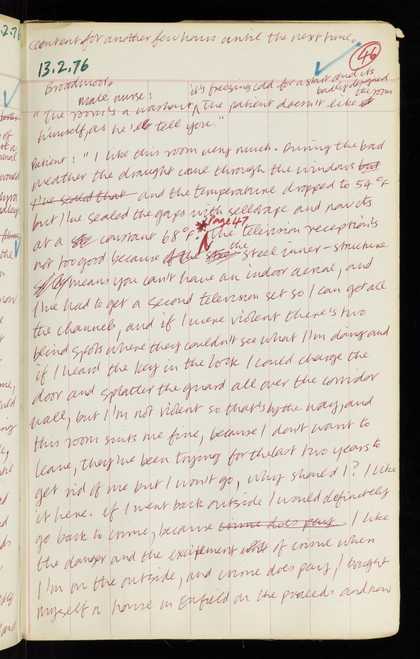 content for another few hours until the next time.
46
13.2.76
Broadmoor
Male nurse:
it's freezing cold for a start and its
badly designed
the room
"The room's a washout, The patient doesn't like it
himself, as he'll tell you."
Patient: "I like this room very much. During the bad
weather the draught came through the windows but
I've sealed that and the temperature dropped to 54°F
but I've sealed the gaps with sellotape and now its
at a constant 68°F.
* Page 47
The television reception's
not too good because of the the steel inner-structure
means you can't have an indoor aerial, and
I've had to get a second television set so I can get all
the channels, and if I were violent there's two
blind spots where they couldn't see what I'm doing and
if I heard the key in the lock I could charge the
door and splatter the guard all over the corridor
wall, but I'm not violent so that's by the way, and
this room suits me fine, because I don't want to
leave, they've been trying for the last two years to
get rid of me but I won't go, why should I? I like
it here. If I went back outside I would definitely
go back to crime, because crime does pay. I like
the danger and the excitement of crime when
I'm on the outside, and crime does pay, I bought
myself a house in Enfield on the proceeds and now